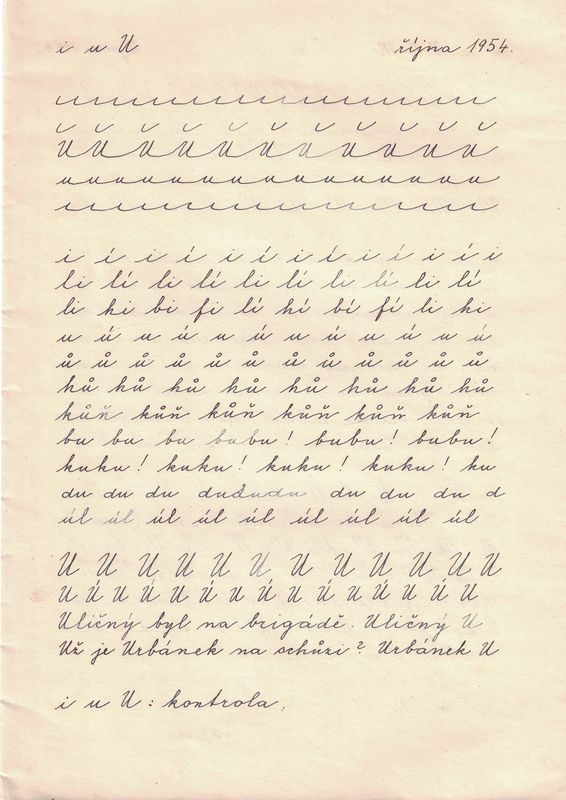 i u U října 1954.
i í i í i í i í i í i í i
li lí li lí li lí li lí li lí
li hi bi fi lí hí bí fí li hi
u ú u ú u ú u ú u ú u ú u ú
ů ů ů ů ů ů ů ů ů ů ů ů
hů hů hů hů hů hů hů hů
kůň kůň kůň kůň kůň kůň
bu bu bu bububu! bubu! bubu!
kuku! kuku! kuku! kuku! ku
du du du dududu du du du d
úl úl úl úl úl úl úl úl úl
U U U U U U U U U U U U
U Ú U Ú U Ú U Ú U Ú U Ú U Ú U
Uličný byl na brigádě. Uličný U
Už je Urbánek na schůzi? Urbánek U
i u U : kontrola.